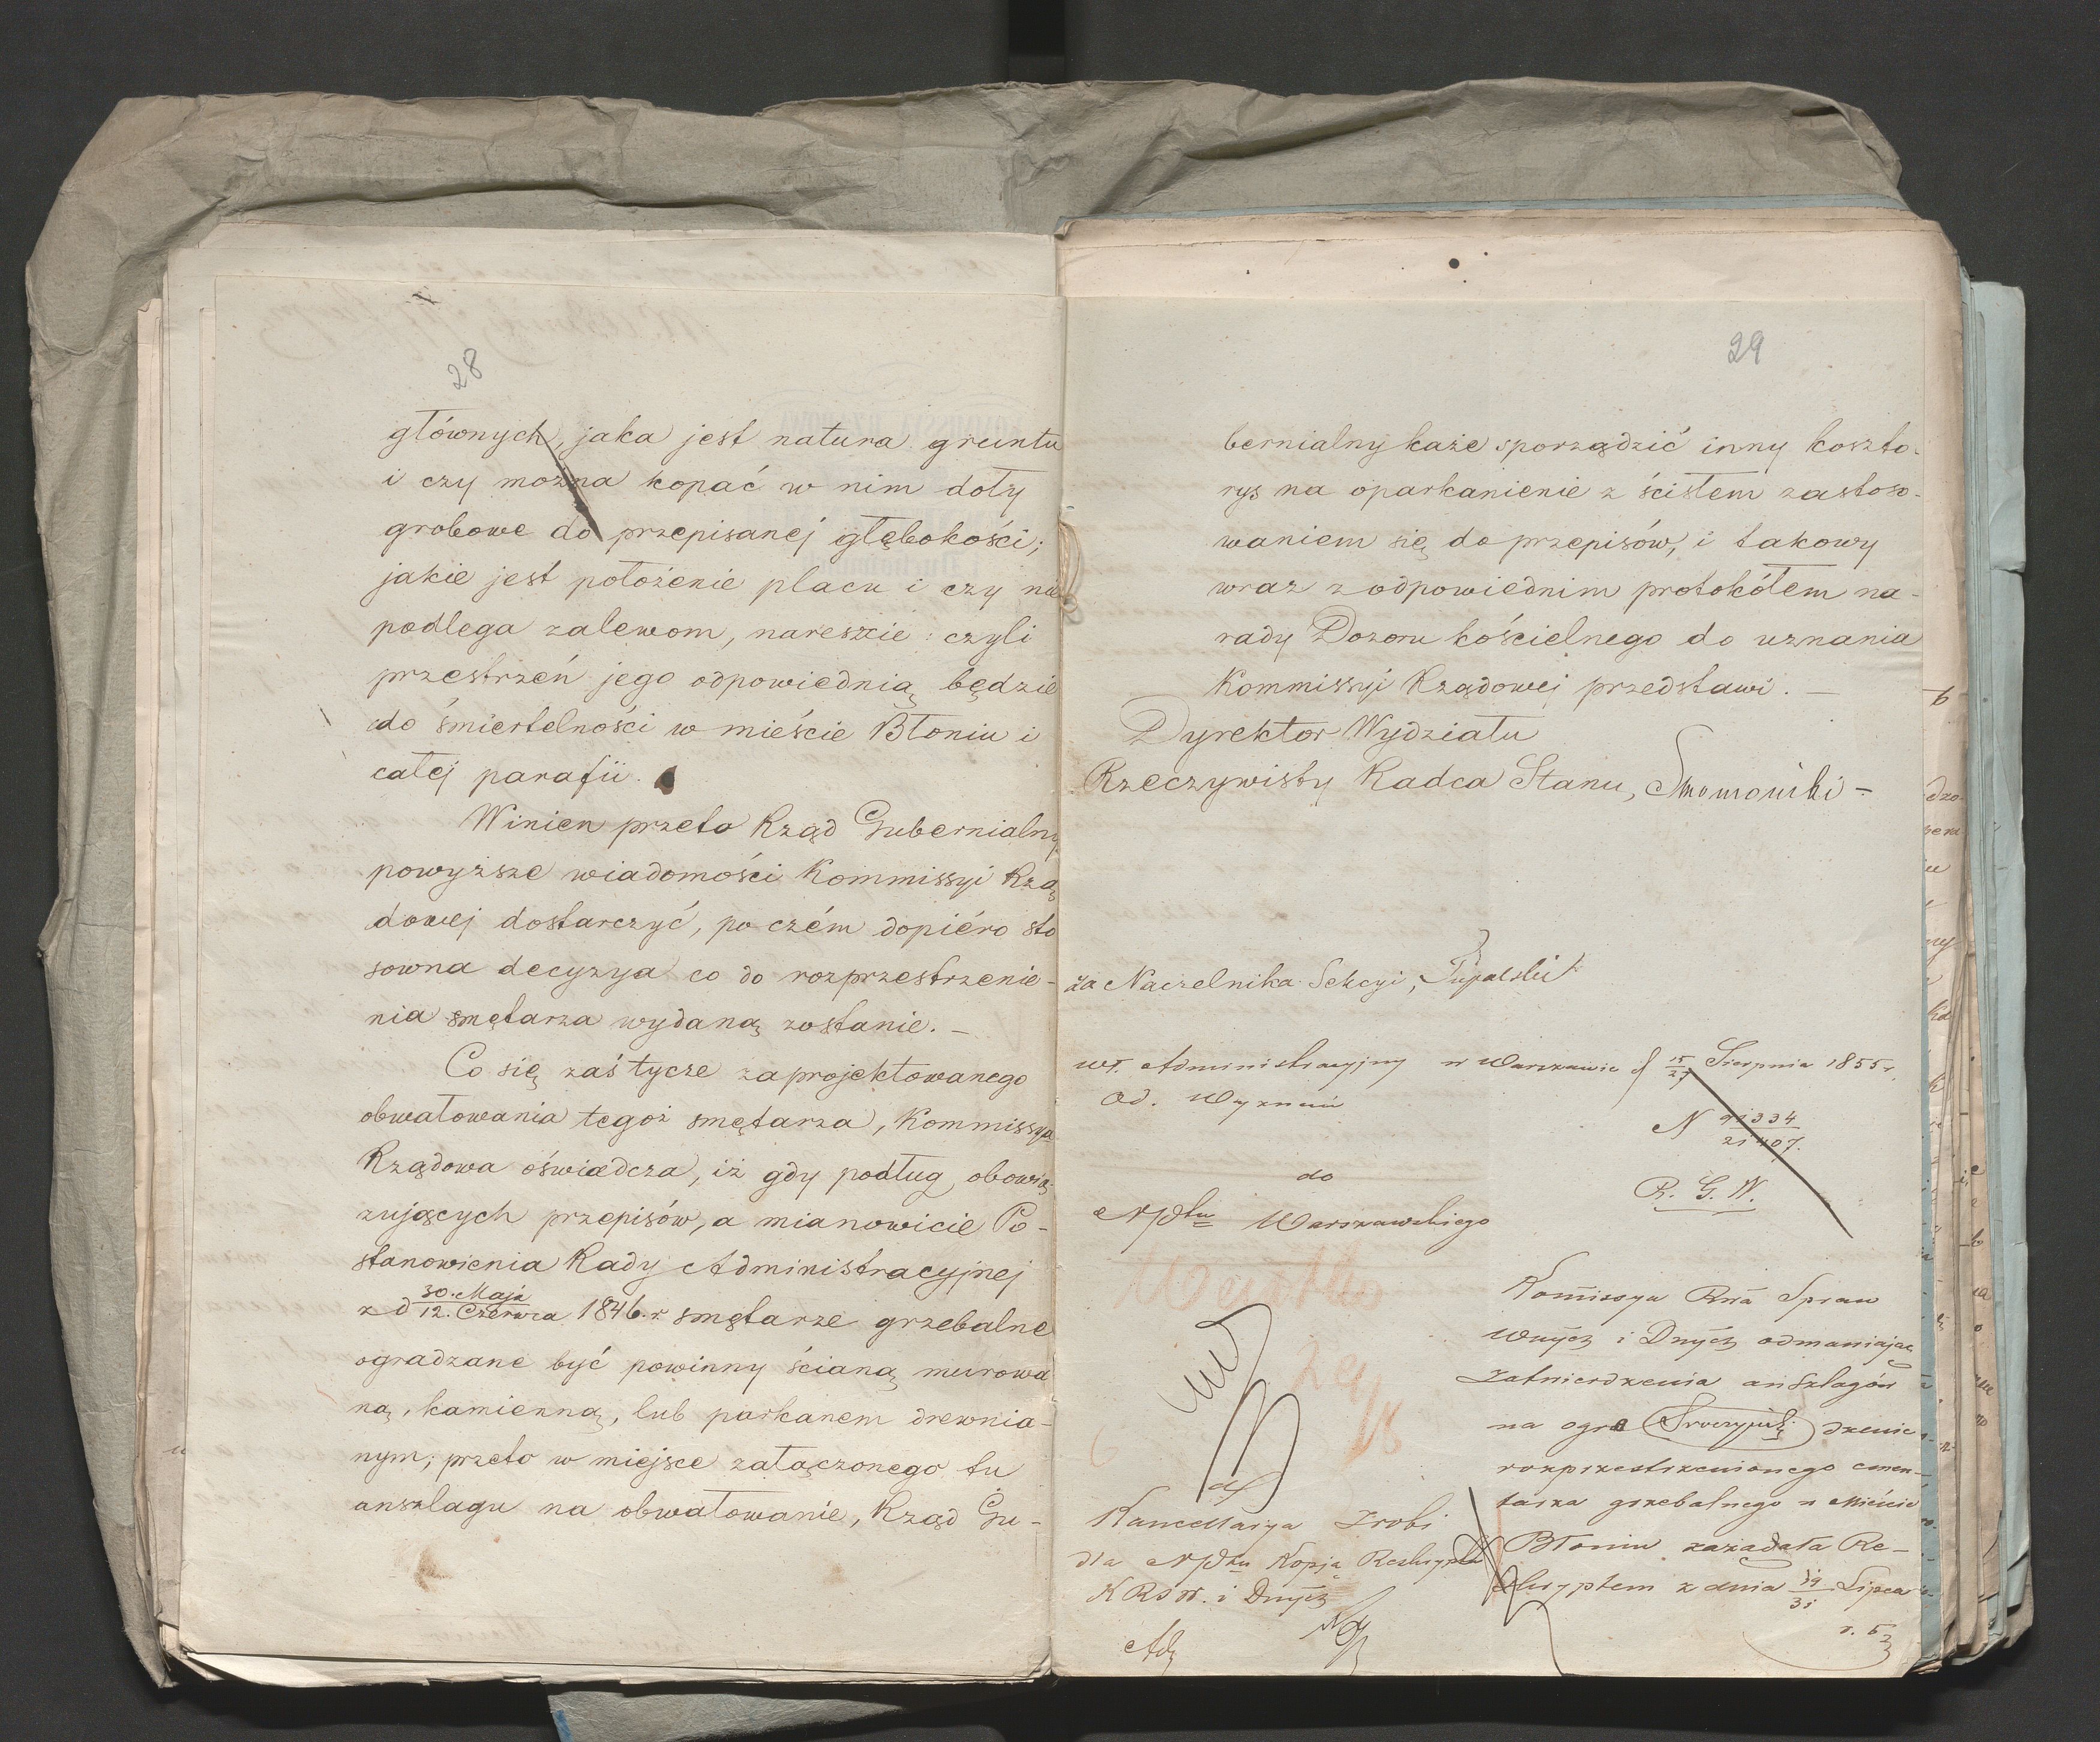 28
głównych, jaka jest natura gruntu
i czy można kopać w nim doły
grobowe do przepisanej głębokości;
jakie jest położenie placu i czy nie
podlega zalewom, nareszcie: czyli
przestrzeń jego odpowiednią będzie
do śmiertelności w mieście Błoniu i
całej parafii.
Winien przeto Rząd Gubernialny
powyższe wiadomości Kommissyi Rzą
dowej dostarczyć, po czém dopiéro sto
sowna decyzya co do rozprzestrzenie-
nia smętarza wydaną zostanie. –
Co się zaś tycze zaprojektowanego
obwałowania tegoż smętarza, Kommissya
Rządowa oświadcza, iż gdy podług obowią-
zujących przepisów, a mianowicie Po-
stanowienia Rady Administracyjnej
z d 30. Maja / 12. Czerwca 1846. r. smętarze grzebalne
ogradzane być powinny ścianą murowa
ną, kamienną, lub parkanem drewnia-
nym; przeto w miejsce załączonego tu
anszlagu na obwałowanie, Rząd Gu-
29
bernialny każe sporządzić inny koszto-
rys na oparkanienie z ścisłem zastoso-
waniem się do przepisów, i takowy
wraz z odpowiednim protokółem na-
rady Dozoru kościelnego do uznania
Kommissyi Rządowej przedstawi. –
Dyrektor Wydziału
Rzeczywisty Radca Stanu,
za Naczelnika Sekcyi,
Wł. Administracyjny w Warszawie d 15/27 Sierpnia 1855 r.
Od. Wyznań
N 91334 / 21407.
do
R. G. W.
Npłu Warszawskiego
29/8
Kommissya Rwa Spraw
Wnych i Dnych odmawiając
Zatwierdzenia anszlagów
na ogra dzenie
rozprzestrzenionego cmen-
tarza grzebalnego w Mieście
Błoniu zażądała Re-
skryptem z dnia 19/31 Lipca
r. b
Kancellarya zrobi
dla Npłu Kopją Reskryptu
KRSW. i Dnych